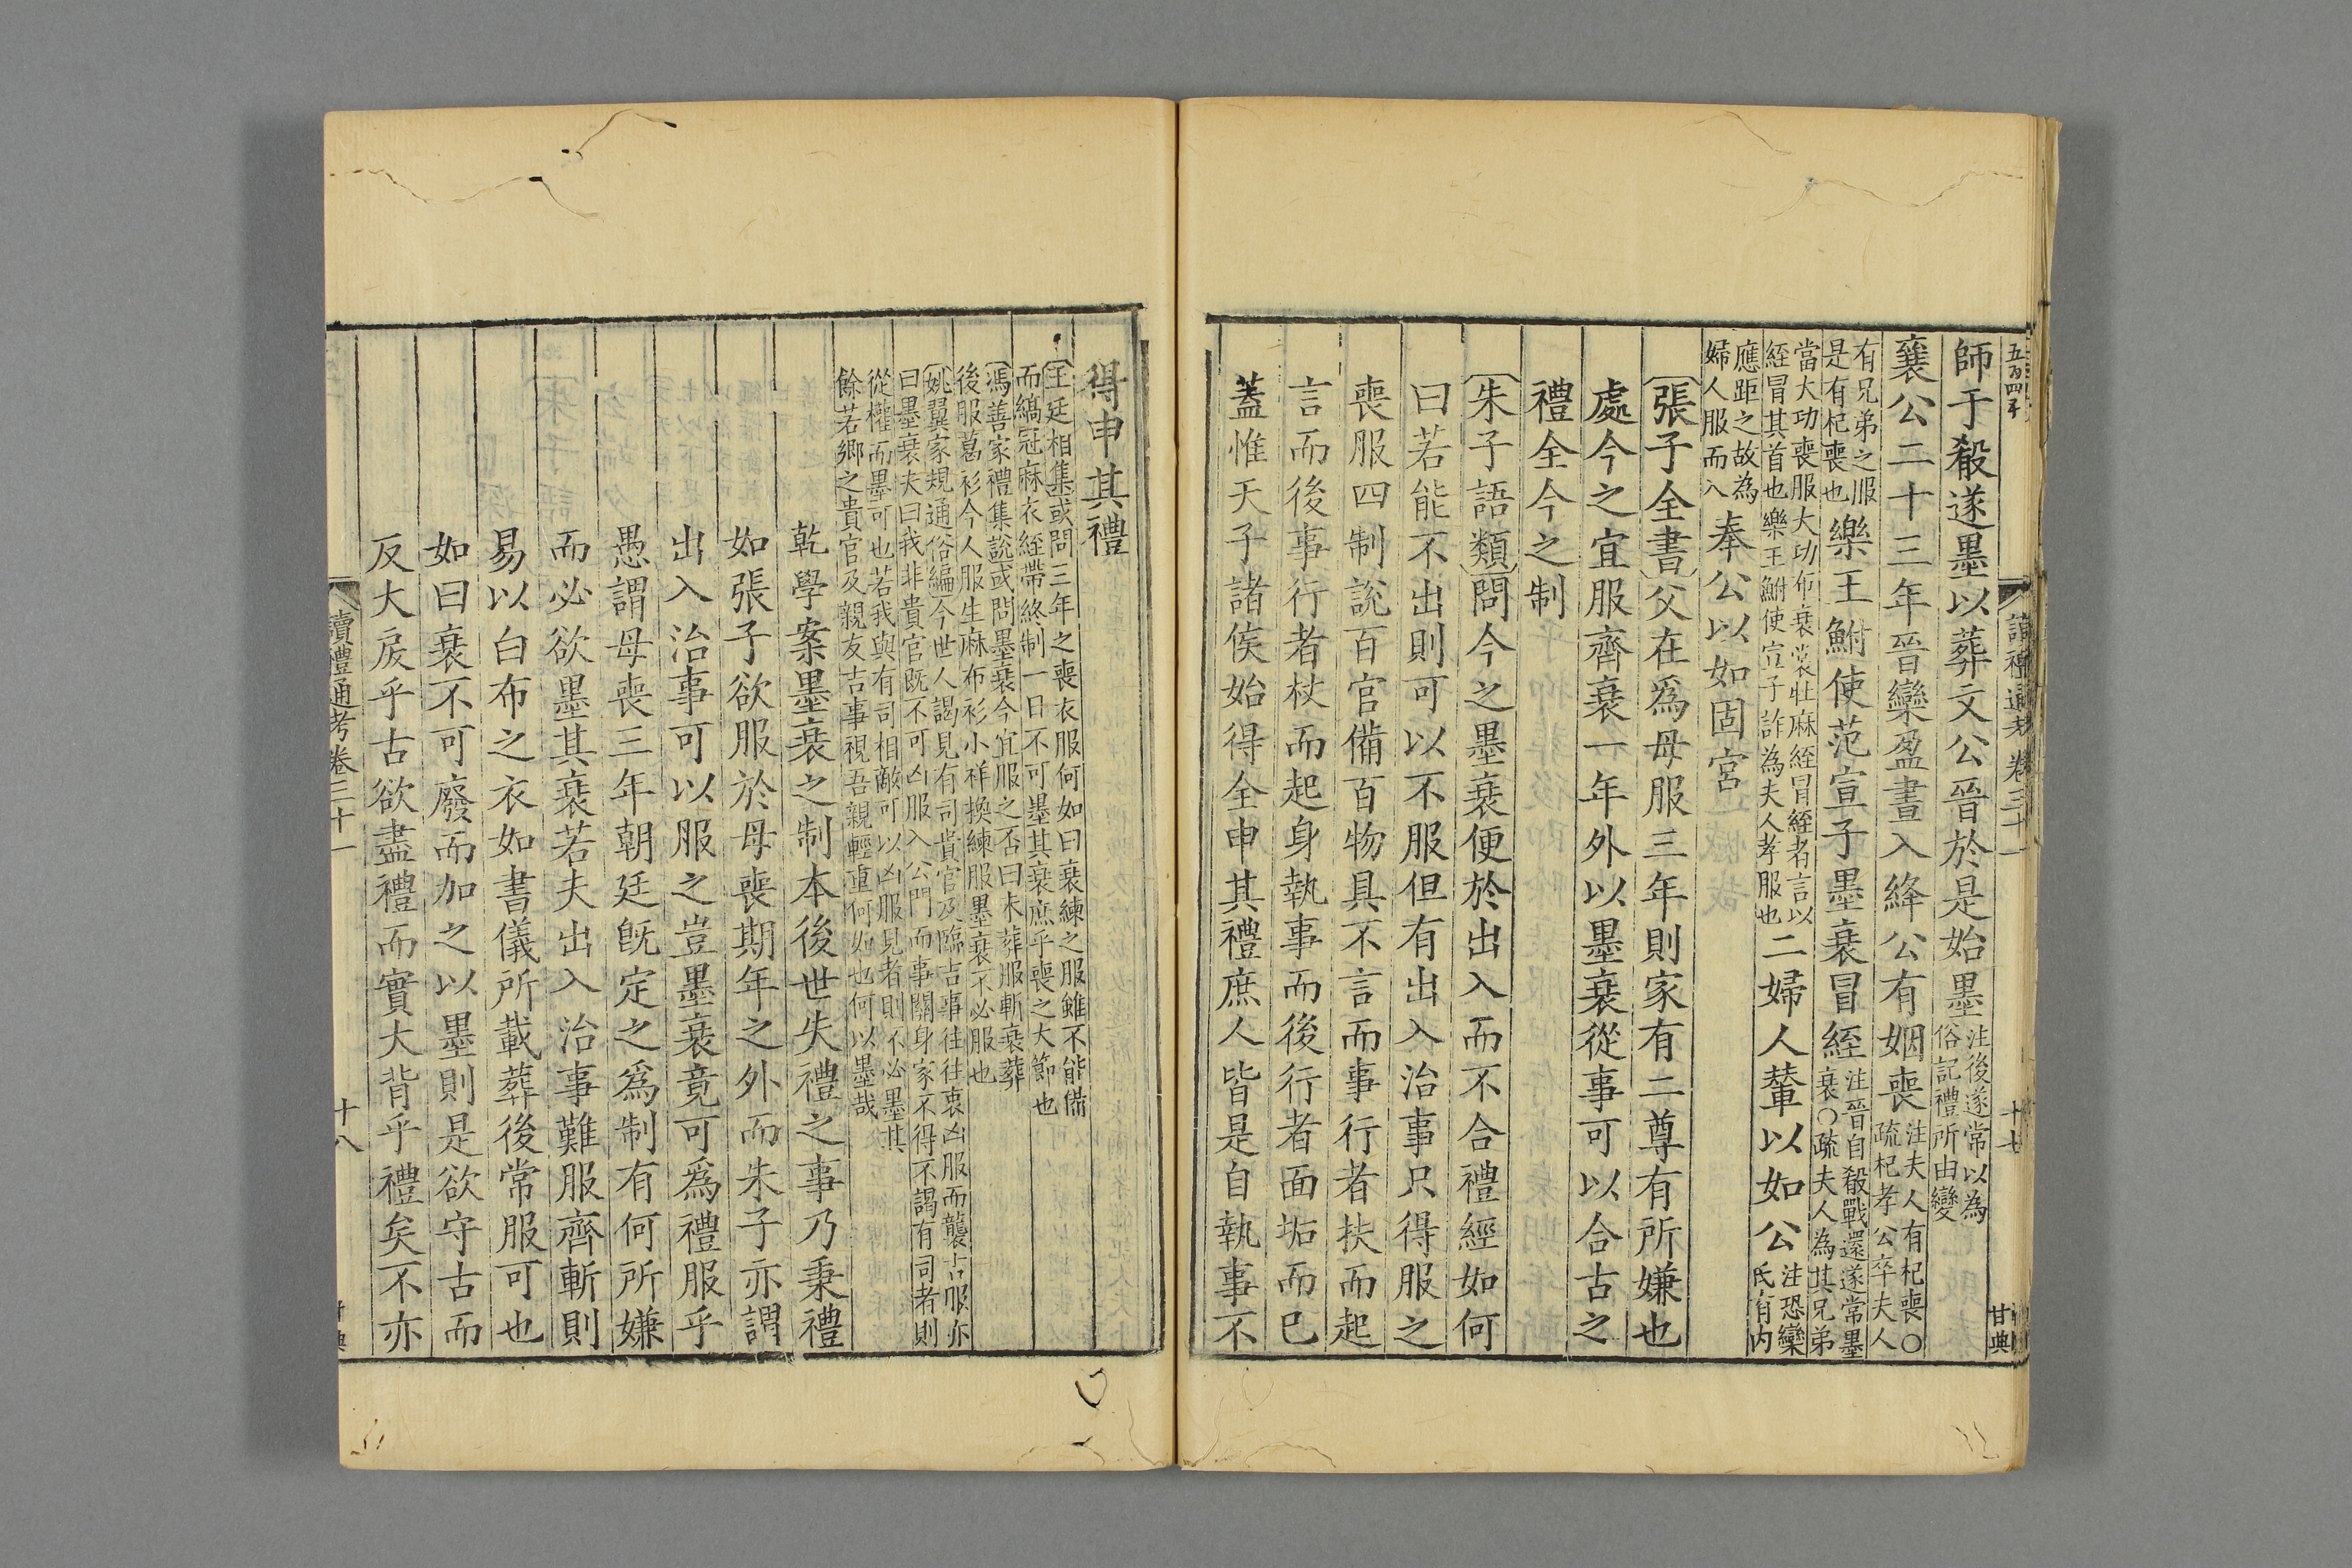 五百四十
讀禮通考卷三十一
十七
甘典
師于殽遂墨以葬文公晉於是始墨注後遂常以為俗記禮所由變
襄公二十三年晉欒盈晝入絳公有姻喪注夫人有杞喪○疏杞孝公卒夫人
有兄弟之服是有杞喪也樂王鮒使范宣子墨衰冒絰注晉自殽戰還遂常墨衰○疏夫人為其兄弟
當大功喪服大功布衰裳牡麻絰冒絰者言以絰冒其首也樂王鮒使宣子詐為夫人孝服也二婦人輦以如公注恐欒氏有内
應距之故為婦人服而入奉公以如固宮
〔張子全書〕父在爲母服三年則家有二尊有所嫌也
處今之宜服齊衰一年外以墨衰從事可以合古之
禮全今之制
〔朱子語類〕問今之墨衰便於出入而不合禮經如何
曰若能不出則可以不服但有出入治事只得服之
喪服四制說百官備百物具不言而事行者扶而起
言而後事行者杖而起身執事而後行者面垢而已
蓋惟天子諸侯始得全申其禮庶人皆是自執事不
得申其禮
〔王廷相集〕或問三年之喪衣服何如曰衰練之服雖不能備
而縞冠麻衣絰帶終制一日不可墨其衰庶乎喪之大節也
〔馮善家禮集說〕或問墨衰今宜服之否曰未葬服斬衰葬
後服葛衫今人服生麻布衫小祥換練服墨衰不必服也
〔姚翼家規通俗編〕今世人謁見有司貴官及臨吉事往往衷凶服而襲吉服亦
曰墨衰夫曰我非貴官既不可凶服入公門而事關身家不得不謁有司者則
從權而墨可也若我與有司相敵可以凶服見者則不必墨其
餘若鄉之貴官及親友吉事視吾親輕重何如也何以墨哉
乾學案墨衰之制本後世失禮之事乃秉禮
如張子欲服於母喪期年之外而朱子亦謂
出入治事可以服之豈墨衰竟可爲禮服乎
愚謂母喪三年朝廷旣定之爲制有何所嫌
而必欲墨其衰若夫出入治事難服齊斬則
易以白布之衣如書儀所載葬後常服可也
如曰衰不可廢而加之以墨則是欲守古而
反大戾乎古欲盡禮而實大背乎禮矣不亦
讀禮通考卷三十一
十八